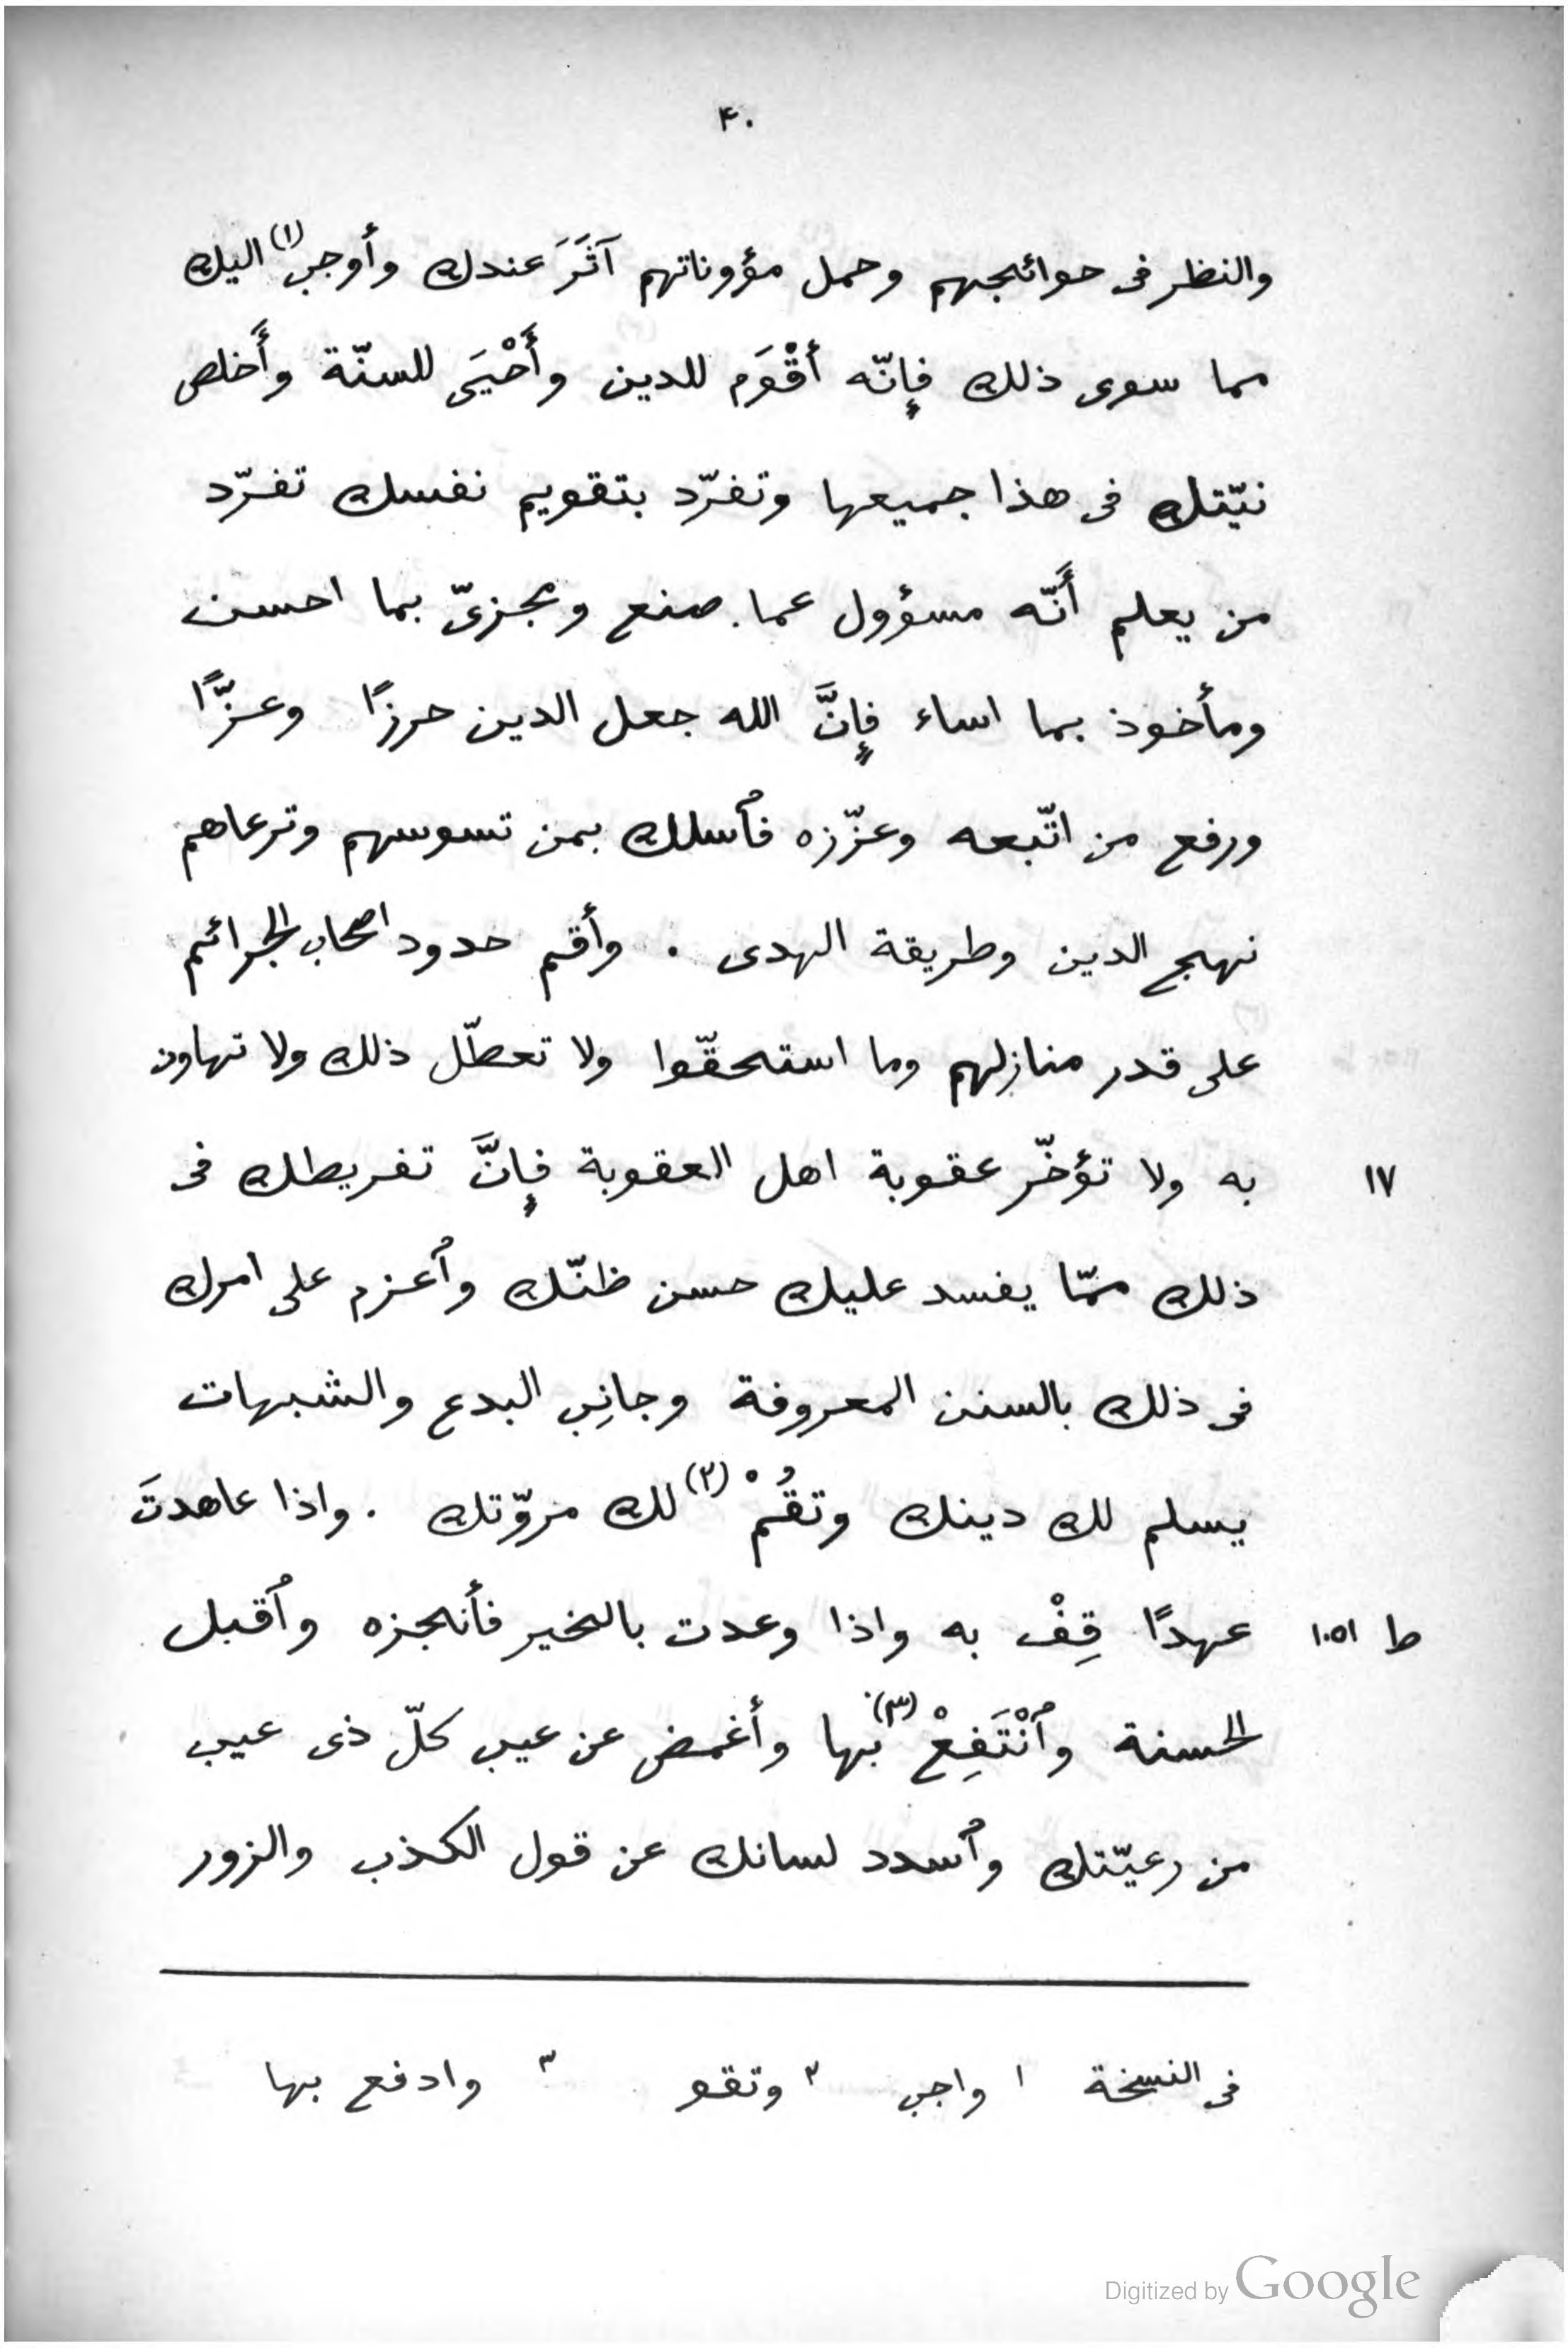 ٤٠
والنظر فى حوائجهم وحمل مؤوناتهم آثَرَ عندك وأوجب(١) اليك
مما سوى ذلك فإنّه أقْوَم للدين وأَحْيَى للسنّة وأَخلص
نيّتك فى هذا جميعها وتفرّد بتقويم نفسك تفرّد
من يعلم أَنّه مسؤول عما صنع ومجزىّ بما احسن
ومأخوذ بما اساء فإنَّ الله جعل الدين حرزًا وعزًّا
ورفع من اتّبعه وعزّزه فٱسلك بمن تسوسهم وترعاهم
نهج الدين وطريقة الهدى . وأقم حدود اصحاب الجرائم
على قدر منازلهم وما استحقّوا ولا تعطّل ذلك ولا تهاون
١٧ به ولا تؤخّر عقوبة اهل العقوبة فإنَّ تفريطك فى
ذلك ممّا يفسد عليك حسن ظنّك وٱعزم على امرك
فى ذلك بالسنن المعروفة وجانِب البدع والشبهات
يسلم لك دينك وتقُمْ(٢) لك مروّتك . واذا عاهدتَ
ط ١٠٥١ عهدًا قِفْ به واذا وعدت بالخير فأنجزه وٱقبل
الحسنة وٱنْتَفِعْ(٣) بها وأغمض عن عيب كلّ ذى عيب
من رعيّتك وٱسدد لسانك عن قول الكذب والزور
فى النسخة ١ واجب ٢ وتقو ٣ وادفع بها
Digitized by Google